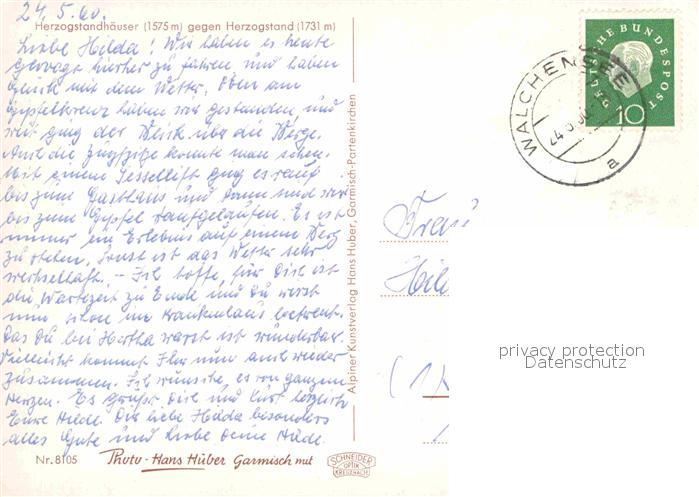 24.5.60.
Herzogstandhäuser (1575 m) gegen Herzogstand (1731 m)
Liebe Hilda! Wir haben es heute
gewagt hierher zu fahren und haben
Glück mit dem Wetter. Oben am
Gipfelkreuz haben wir gestanden und
weit ging der Blick über die Berge.
Auch die Zugspitze konnte man sehen.
Mit einem Sessellift ging es rauf
bis zum Gasthaus und dann sind wir
bis zum Gipfel raufgelaufen. Es ist
immer ein Erlebnis auf einem Berg
zu stehen. Sonst ist das Wetter sehr
wechselhaft. – Ich hoffe, für Dich ist
die Wartezeit zu Ende und Du wirst
nun schon im Krankenhaus
Das Du bei Hertha warst ist wunderbar.
Vielleicht kommt Ihr nun auch wieder
zusammen. Ich wünsche es von ganzem
Herzen. Es grüßt Dich und herzlich
Eure Hilde. Dir liebe Hilda besonders
alles Gute und Liebe Deine Hilde.
Nr. 8105
Photo - Hans Huber Garmisch mit
SCHNEIDER
OPTIK
KREUZNACH
Alpiner Kunstverlag Hans Huber, Garmisch-Partenkirchen
DEUTSCHE BUNDESPOST
10
WALCHENSEE
a
Frau
Hil
(1
privacy protection
Datenschutz